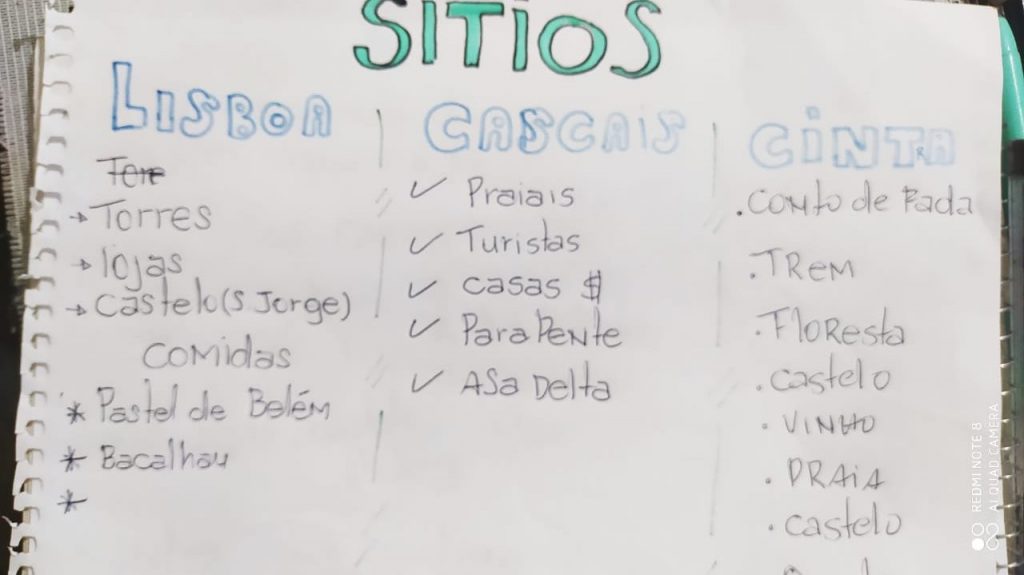 SITIOS
LISBOA
Torres
lojas
Castelo (S Jorge)
COMIDAS
Pastel de Belém
Bacalhau
CASCAIS
Praiais
Turistas
casas $
ParaPente
ASa Delta
CiNTRA
CONto de Fada
TREM
FloResta
castelo
VINHO
PRAiA
castelo
REDMI NOTE 8
AI QUAD CAMERA